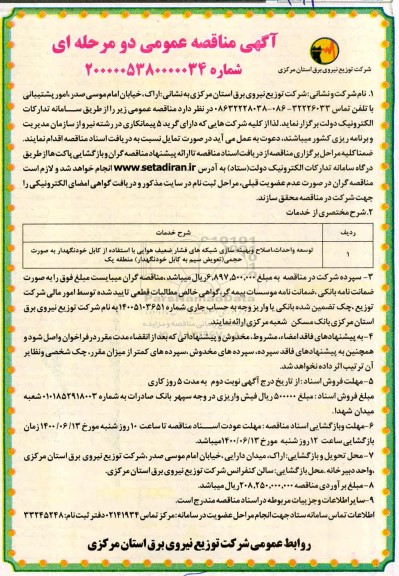 آگهی مناقصه عمومی دو مرحله ای
شماره ۲۰۰۰۰۰۵۳۸۰۰۰۰۰۳۴
شرکت توزیع نیروی برق استان مرکزی
۱. نام شرکت و نشانی: شرکت توزیع نیروی برق استان مرکزی به نشانی: اراک، خیابان امام موسی صدر، امور پشتیبانی
با تلفن تماس ۳۲۲۲۶۰۳۳-۰۸۶ -۰۸۶۳۲۲۲۸۰۳۸ در نظر دارد مناقصه عمومی زیر را از طریق سامانه تدارکات
الکترونیک دولت برگزار نماید. لذا از کلیه شرکت هایی که دارای گرید ۵ پیمانکاری در رشته نیرو از سازمان مدیریت
و برنامه ریزی کشور میباشند، دعوت به عمل می آید در صورت تمایل نسبت به دریافت اسناد مناقصه اقدام نمایند.
ضمنا کلیه مراحل برگزاری مناقصه از دریافت اسناد مناقصه تا ارائه پیشنهاد مناقصه گران و بازگشایی پاکت ها از طریق
درگاه سامانه تدارکات الکترونیک دولت (ستاد) به آدرس www.setadiran.ir انجام خواهد شد و لازم است
مناقصه گران در صورت عدم عضویت قبلی، مراحل ثبت نام در سایت مذکور و دریافت گواهی امضای الکترونیکی را
جهت شرکت در مناقصه محقق سازند.
۲. شرح مختصری از خدمات
ردیف شرح خدمات
۱ توسعه و احداث، اصلاح و بهینه سازی شبکه های فشار ضعیف هوایی با استفاده از کابل خودنگهدار به صورت
حجمی (تعویض سیم به کابل خودنگهدار) منطقه یک
۳- سپرده شرکت در مناقصه به مبلغ ۶،۸۹۷،۵۰۰،۰۰۰ ریال میباشد، مناقصه گران میبایست مبلغ فوق را به صورت
ضمانت نامه بانکی، ضمانت نامه موسسات بیمه گر، گواهی خالص مطالبات قطعی تایید شده توسط امور مالی شرکت
توزیع، چک تضمین شده بانکی یا واریز وجه به حساب جاری شماره ۱۴۰۰۵۱۰۳۶۵۱ به نام شرکت توزیع نیروی برق
استان مرکزی بانک مسکن شعبه مرکزی ارائه نمایند.
۴- به پیشنهادهای فاقد امضاء، مشروط، مخدوش و پیشنهاداتی که بعد از انقضاء مدت مقرر در فراخوان واصل شود و
همچنین به پیشنهادهای فاقد سپرده، سپرده های مخدوش، سپرده های کمتر از میزان مقرر، چک شخصی و نظایر
آن ترتیب اثر داده نخواهد شد.
۵- مهلت فروش اسناد: از تاریخ درج آگهی نوبت دوم به مدت ۵ روز کاری
مبلغ فروش اسناد: مبلغ ۵۰۰۰۰۰ ریال فیش واریزی در وجه سپهر بانک صادرات به شماره ۰۱۰۱۸۵۲۹۱۸۰۰۳ شعبه
میدان شهدا.
۶- مهلت و بازگشایی اسناد مناقصه: مهلت عودت اسناد مناقصه تا ساعت ۱۰ روز شنبه مورخ ۱۴۰۰/۰۶/۱۳ زمان
بازگشایی ساعت ۱۲ روز شنبه مورخ ۱۴۰۰/۰۶/۱۳ میباشد.
۷- محل تحویل و بازگشایی: اراک، میدان دارایی، خیابان امام موسی صدر، شرکت توزیع نیروی برق استان مرکزی
، واحد دبیرخانه. محل بازگشایی: سالن کنفرانس شرکت توزیع نیروی برق استان مرکزی.
۸- مبلغ برآوردی مناقصه ۲۰۸،۲۵۰،۰۰۰،۰۰۰ ریال میباشد.
۹- سایر اطلاعات و جزییات مربوطه در اسناد مناقصه مندرج است.
اطلاعات تماس سامانه ستاد جهت انجام مراحل عضویت در سامانه: مرکز تماس ۰۲۱۴۱۹۳۴ دفتر ثبت نام: ۳۳۲۴۵۲۴۸
روابط عمومی شرکت توزیع نیروی برق استان مرکزی